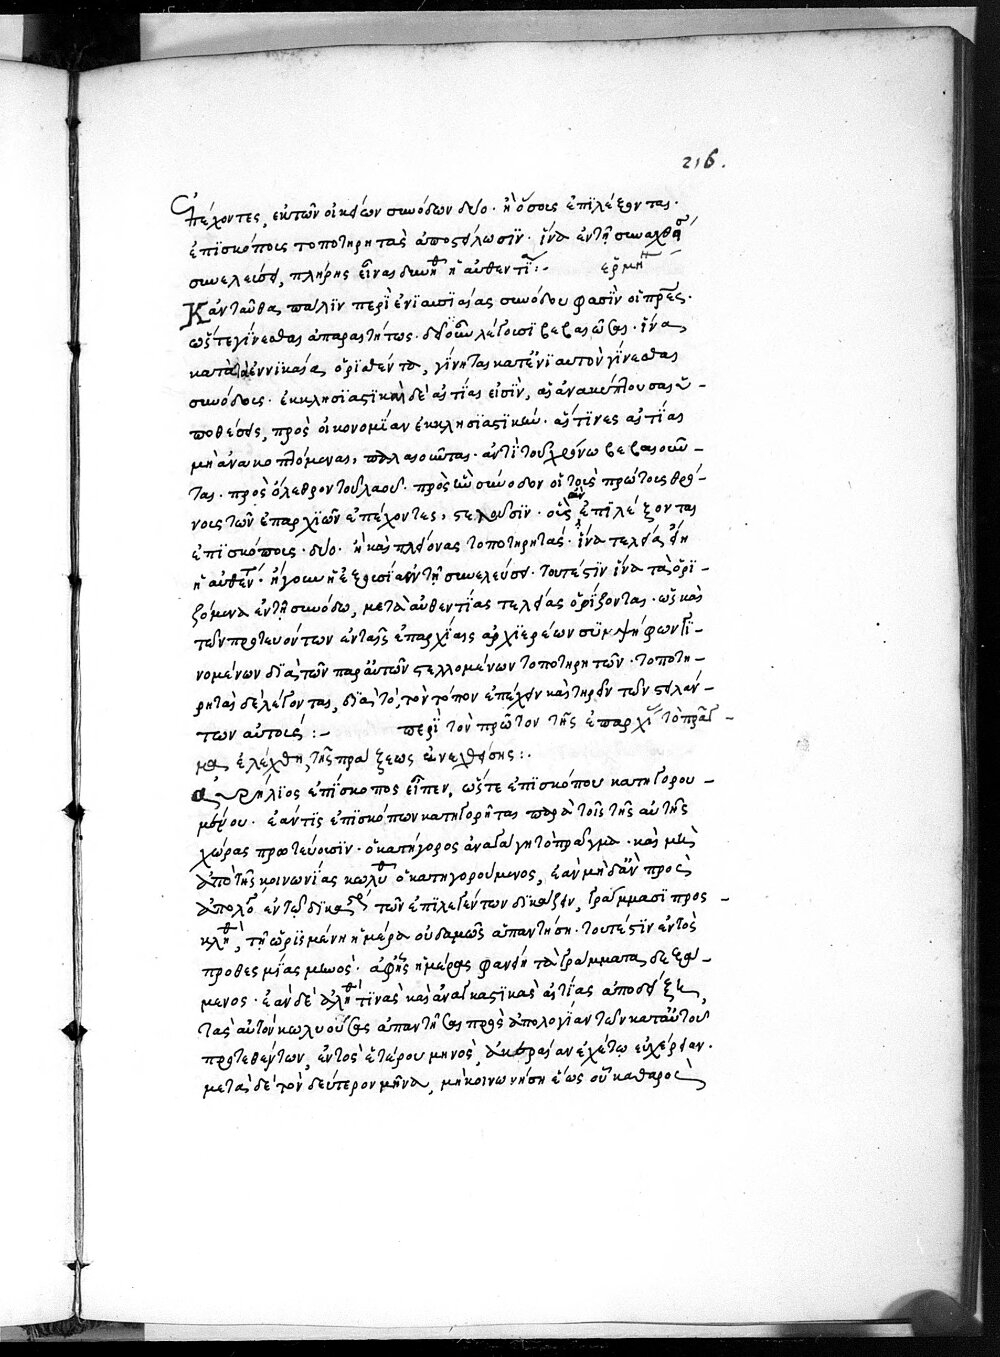 216.
ἐπέχοντες, ἐκ τῶν οἰκείων συνόδων δύο· ἢ ὅσους ἐπιλέξονται·
ἐπισκόπους τοποτηρητὰς ἀποστείλωσιν· ἵνα ἐν τῇ συναχθεί
συνελεύσει, πλήρης εἶναι δυνηθῇ ἡ αὐθεντία:· ἑρμη
Κἀνταῦθα πάλιν περὶ ἐνιαυσιαίας συνόδου φασὶν οἱ πρες·
ὥστε γίνεσθαι ἀπαραιτήτως· λέγουσι βεβαιῶσαι· ἵνα
κατὰ τὰ ἐν νικαία ὁρισθέντα, γίνηται κατ' ἐνιαυτὸν γίνεσθαι
συνόδους· ἐκκλησιαστικαὶ δὲ αἰτίαι εἰσὶν, αἱ ἀνακύπτουσαι ὑ-
ποθέσεις, πρὸς οἰκονομίαν ἐκκλησιαστικήν· αἵτινες αἰτίαι
μὴ ἀνακοπτόμεναι, παλαιοῦνται· ἀντὶ τοῦ χρόνω βεβαιοῦν-
ται· πρὸς ὄλεθρον τοῦ λαοῦ· πρὸς ἣν σύνοδον οἱ τοὺς πρώτους θρό-
νους τῶν ἐπαρχιῶν ἐπέχοντες, στελοῦσιν· οὓς ἂν ἐπιλέξονται
ἐπισκόπους· δύο· ἢ καὶ πλείονας τοποτηρητάς· ἵνα τελεία εἴη
ἡ αὐθεν· ἤγουν ἡ ἐξουσία ἐν τῇ συνελεύσει· τουτέστιν ἵνα τὰ ὁρι-
ζόμενα ἐν τῇ συνόδω, μετὰ αὐθεντίας τελείας ὁρίζονται· ὡς καὶ
τῶν πρωτευόντων ἐν ταῖς ἐπαρχίαις ἀρχιερέων συμψήφων γι-
νομένων διὰ τῶν παρ' αὐτῶν στελλομένων τοποτηρητῶν· τοποτη-
ρηταὶ δὲ λέγονται, διὰ τὸ, τὸν τόπον ἐπέχειν καὶ τηρεῖν τῶν στειλάν-
των αὐτούς:- περὶ τὸν πρῶτον τῆς ἐπαρχί τὸ πρᾶγ-
μα ἐλέχθη, τῆς πράξεως ἀνελθούσης:·
Αὐρήλιος ἐπίσκοπος εἶπεν, ὥστε ἐπισκόπου κατηγορου-
μένου· ἐάν τις ἐπισκόπων κατηγορῆται παρὰ τοῖς τῆς αὐτῆς
χώρας πρωτεύουσιν· ὁ κατήγορος ἀναγάγη τὸ πρᾶγμα· καὶ μὴ
ἀπὸ τῆς κοινωνίας κωλυθῇ ὁ κατηγορούμενος, ἐὰν μὴ δ' ἂν πρὸς
ἀπολογ ἐν τῶ δικασ τῶν ἐπιλεγέντων δικάζειν, γράμμασι προς-
κλη, τῇ ὡρισμένη ἡμέρα οὐδαμῶς ἀπαντήση· τουτέστιν ἐντὸς
προθεσμίας μηνός· ἀφ' ἧς ἡμέρας φανείη τὰ γράμματα δεξά-
μενος· ἐὰν δέ ἀληθεῖ τινας καὶ ἀναγκαστικὰς αἰτίας ἀποδείξῃ
τὰς αὐτὸν κωλυούσας ἀπαντῆσαι πρὸς ἀπολογίαν τῶν κατ' αὐτοῦ
προτεθέντων, ἐντὸς ἑτέρου μηνὸς, ἀκεραίαν ἐχέτω εὐχέρειαν·
μετὰ δὲ τὸν δεύτερον μῆνα, μὴ κοινωνήση ἕως οὗ καθαρὸς